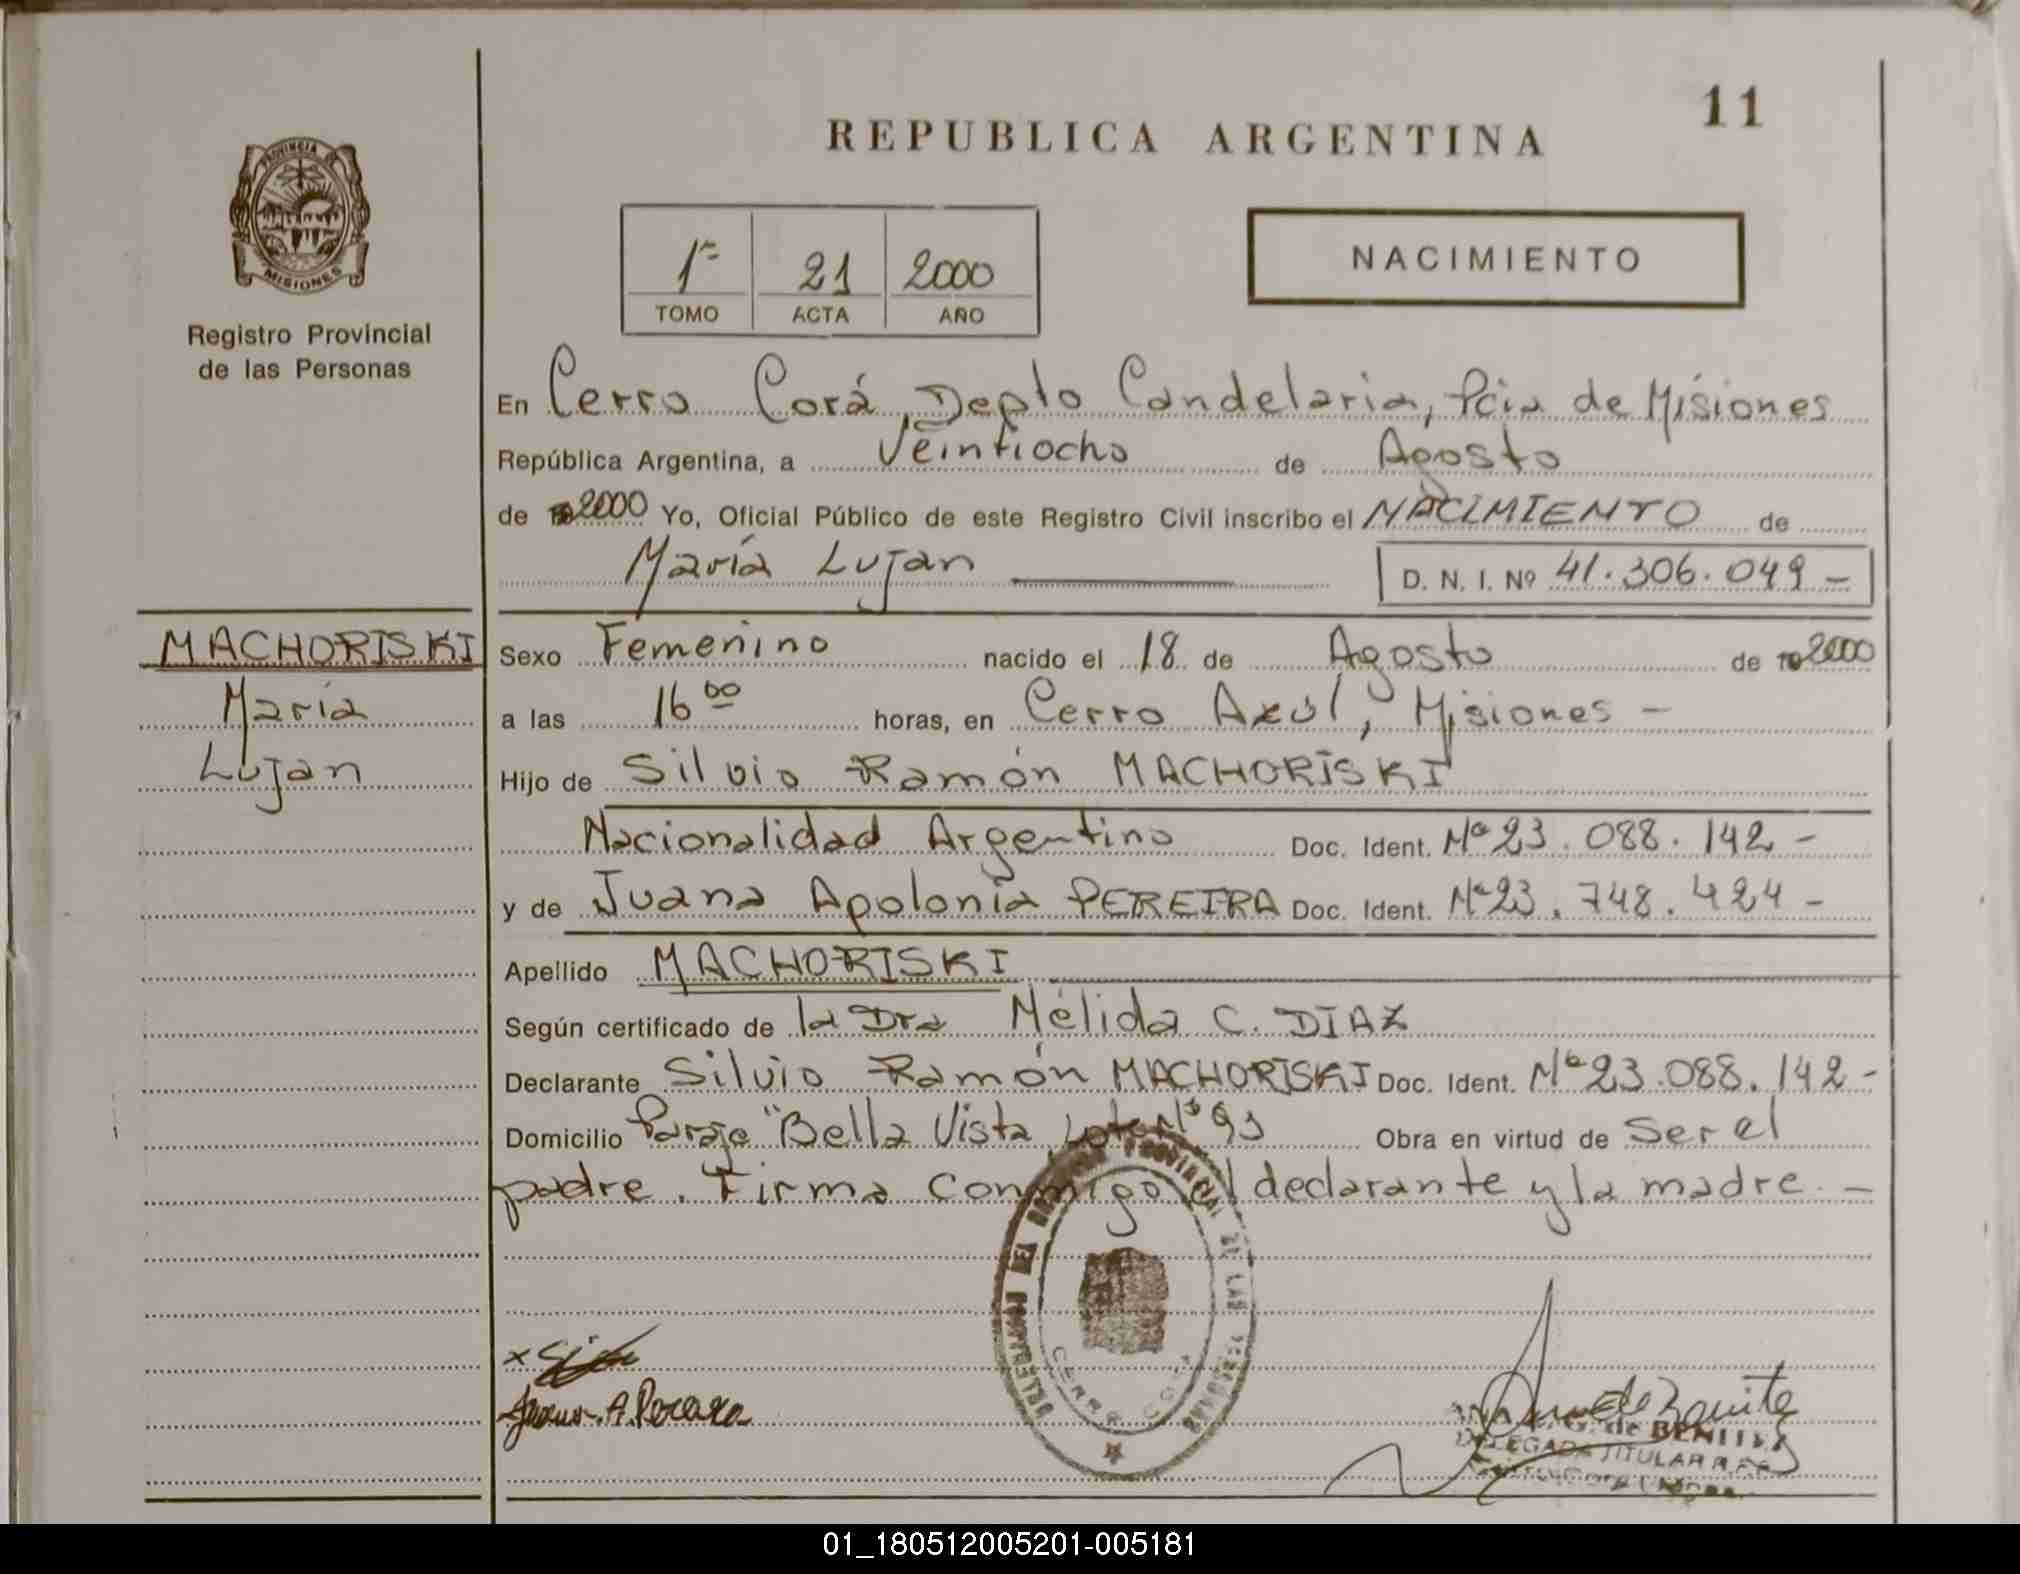 11
REPUBLICA ARGENTINA
PROVINCIA DE
MISIONES
Registro Provincial
de las Personas
1º 21 2000
TOMO ACTA AÑO
NACIMIENTO
En Cerro Corá, Depto Candelaria, Pcia de Misiones
República Argentina, a Veintiocho de Agosto
de 2000 Yo, Oficial Público de este Registro Civil inscribo el NACIMIENTO de
María Lujan D. N. I. Nº 41.306.049 -
MACHORISKI
María
Lujan
Sexo Femenino nacido el 18 de Agosto de 2000
a las 16 00 horas, en Cerro Azul, Misiones -
Hijo de Silvio Ramón MACHORISKI
Nacionalidad Argentino Doc. Ident. Nº 23.088.142 -
y de Juana Apolonia PEREIRA Doc. Ident. Nº 23.748.424 -
Apellido MACHORISKI
Según certificado de la Dra Nélida C. DIAZ
Declarante Silvio Ramón MACHORISKI Doc. Ident. Nº 23.088.142 -
Domicilio Paraje "Bella Vista, Lote Nº 93 Obra en virtud de Ser el
padre. Firma conmigo el declarante y la madre. -
PROVINCIAL DE LAS
CERRO CORA
G. de BENITEZ
DELEGADA TITULAR
01_180512005201-005181